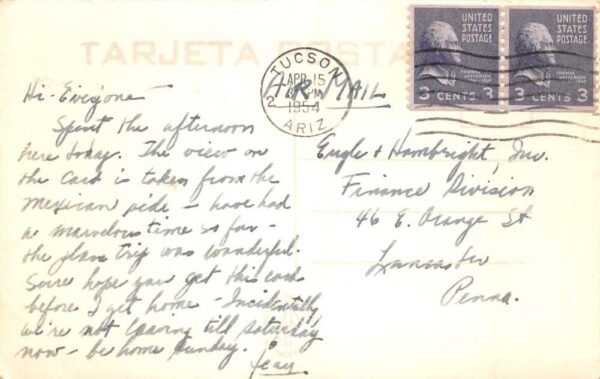 TARJETA POSTA
UNITED STATES POSTAGE
THOMAS JEFFERSON
3 CENTS 3
UNITED STATES POSTAGE
THOMAS JEFFERSON
3 CENTS 3
TUCSON
APR 15
PM
1954
ARIZ
2
AIR MAIL
Hi-Everyone-
Spent the afternoon
here today. The view on
the card is taken from the
Mexican side - have had
a marvelous time so far -
the plane trip was wonderful.
Sure hope you get this card
before I get home - Incidentally
we're not leaving till Saturday
now - be home Sunday.
Jean.
Engle & Hambright, Inc.
Finance Division
46 E. Orange St
Lancaster
Penna.